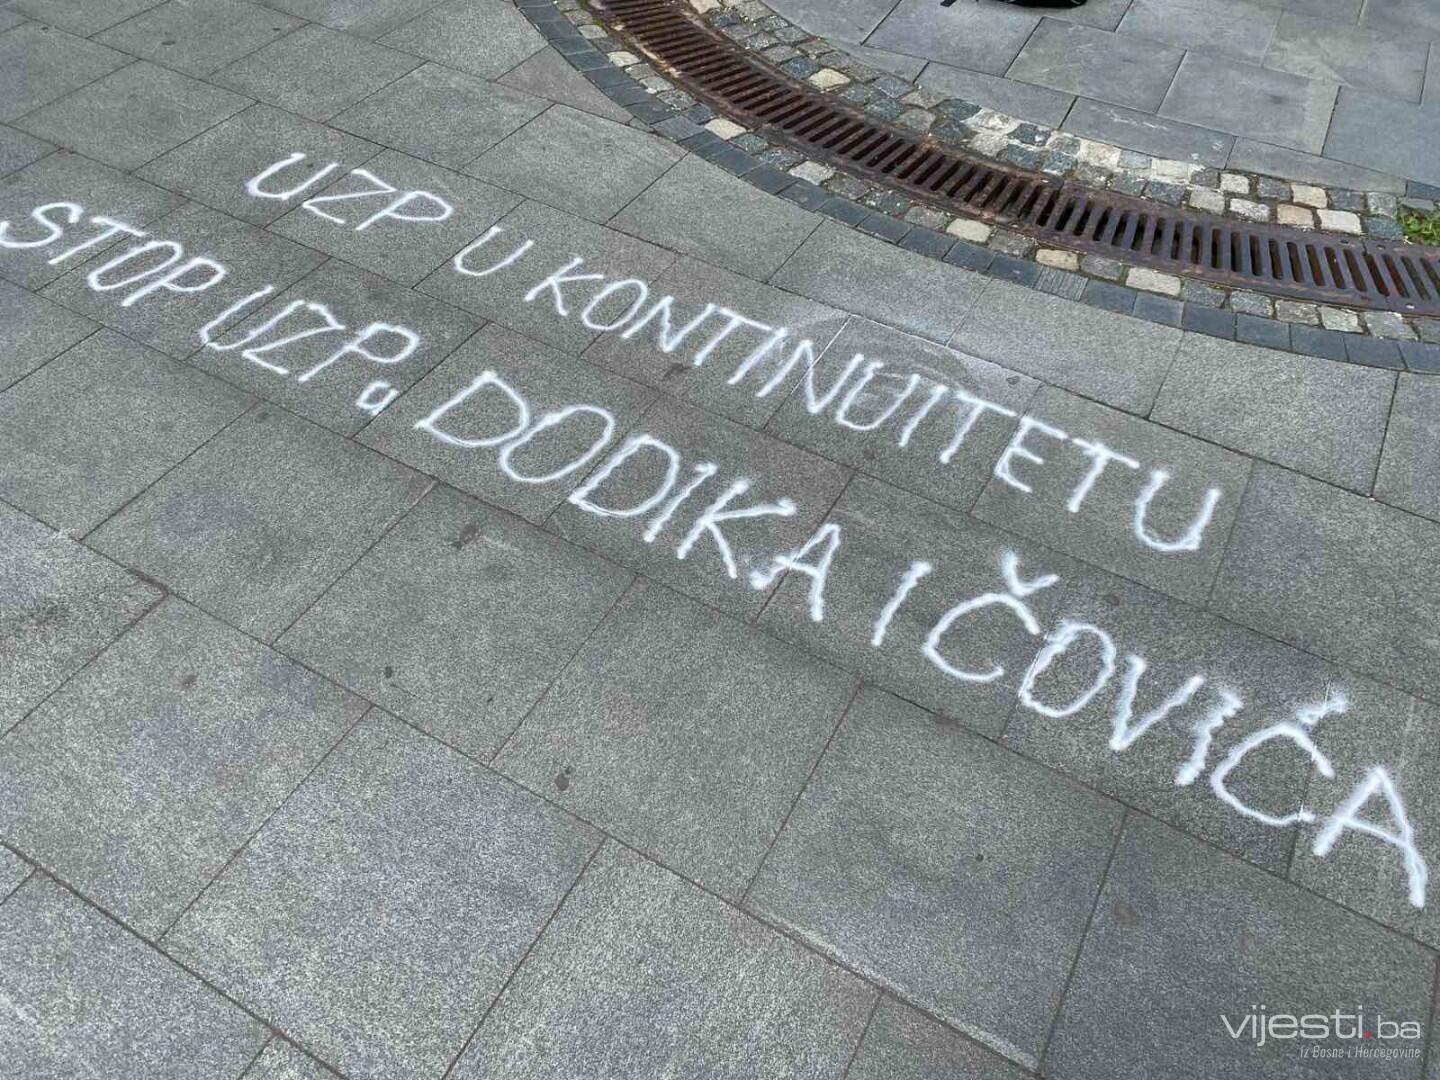 UZP U KONTINUITETU
STOP UZPu DODIKA I ČOVIĆA
vijesti.ba
Iz Bosne i Hercegovine